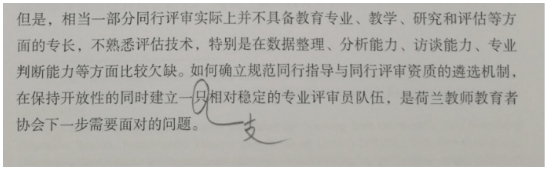 但是，相当一部分同行评审实际上并不具备教育专业、教学、研究和评估等方
面的专长，不熟悉评估技术，特别是在数据整理、分析能力、访谈能力、专业
判断能力等方面比较欠缺。如何确立规范同行指导与同行评审资质的遴选机制，
在保持开放性的同时建立一只相对稳定的专业评审员队伍，是荷兰教师教育者
协会下一步需要面对的问题。
支